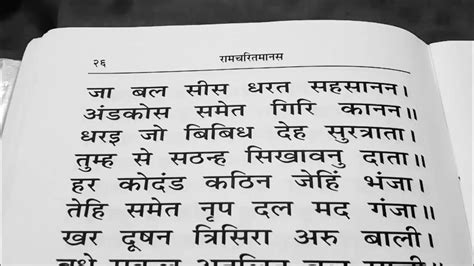 २६ रामचरितमानस
जा बल सीस धरत सहसानन।
अंडकोस समेत गिरि कानन॥
धरइ जो बिबिध देह सुरत्राता।
तुम्ह से सठन्ह सिखावनु दाता॥
हर कोदंड कठिन जेहिं भंजा।
तेहि समेत नृप दल मद गंजा॥
खर दूषन त्रिसिरा अरु बाली।